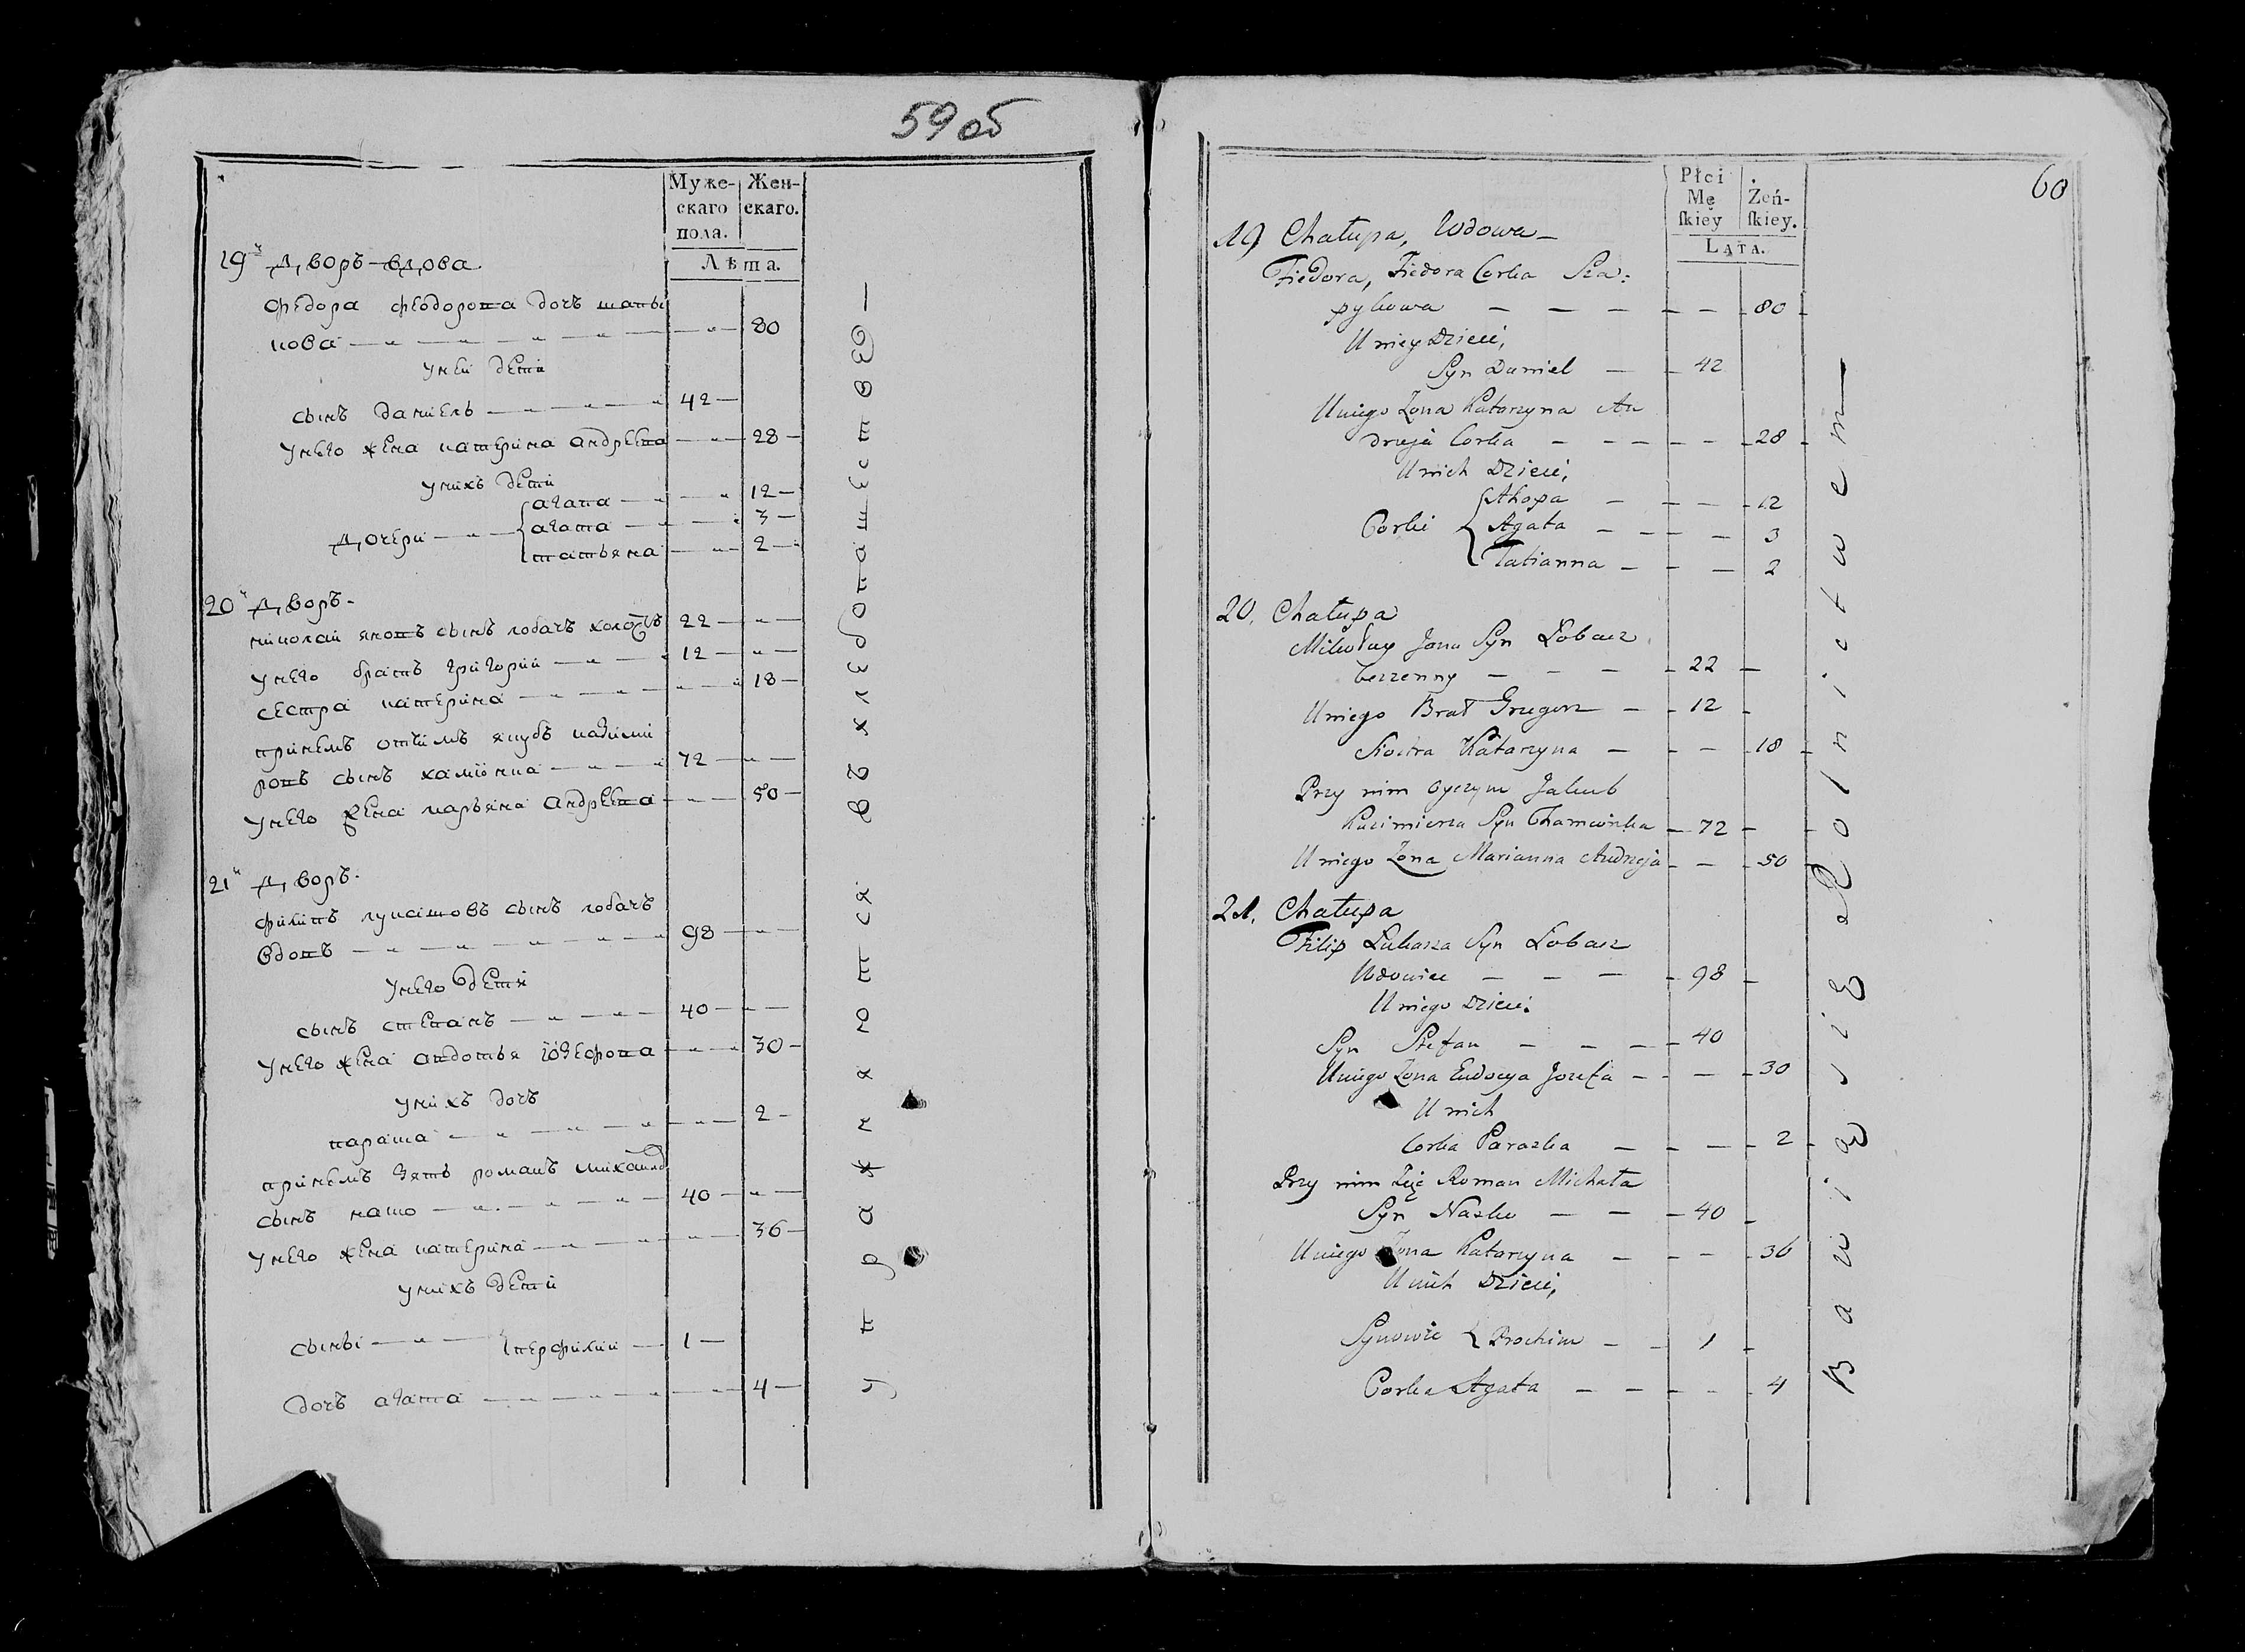 59 об
Муже-
скаго
пола.
Жен-
скаго.
Лѣта.
19й Дворъ вдова
Федора Феодорова дочъ шапы
кова — — — 80
у ней дети
сынъ Даниель — 42 —
у него жена катерина андреева — 28 —
у нихъ дети
агапа — 12 —
дочери — агата — 3 —
татьяна — 2 —
20й Дворъ.
николай яновъ сынъ лобачъ холостъ 22 —
у него братъ григорий — 12 —
сестра катерина — 18 —
принемъ отчимъ якубъ казими
ровъ сынъ — 72 —
у него жена марьяна андреева — 50 —
21й Дворъ.
филипъ лукашовъ сынъ лобачъ
вдовъ — 98 —
у него дети
сынъ степанъ — 40 —
у него жена авдотья юзефова — 30 —
у нихъ дочъ
параша — 2 —
принемъ зять романъ михайлов
сынъ — 40 —
у него жена катерина — 36 —
у нихъ дети
сыны — перфилий — 1 —
дочъ агата — 4 —
упражняются въ хлебопашестве —
60
Płci
Mę
skiey
Żeń-
skiey.
LATA.
19 Chałupa, Wdowa —
Fiedora, Fiedora Corka Sza:
pykowa — — — 80
U niey Dzieci,
Syn Daniel — 42
U niego Zona Katarzyna An
drzeja Corka — 28
U nich Dzieci,
Ahapa — 12
Corki Agata — 3
Tatianna — 2
20. Chałupa
Mikołay Jana Syn Łobacz
bezzenny — 22 —
U niego Brat Grzegorz — 12 —
Siostra Katarzyna — 18
Przy nim Oyczym Jakub
Kazimierza Syn — 72 —
U niego Zona Marianna Andrzeja — 50
21. Chałupa
Filip Łukasza Syn Łobacz
Wdowiec — 98 —
U niego Dzieci:
Syn Stefan — 40
U niego Zona Eudocya Jozefa — 30
U nich
Corka Paraska — 2
Przy nim Zięć Roman Michała
Syn — 40 —
U niego Zona Katarzyna — 36
U nich Dzieci,
Synowie — 1 —
Corka Agata — 4
Bawią się Rolnictwem —